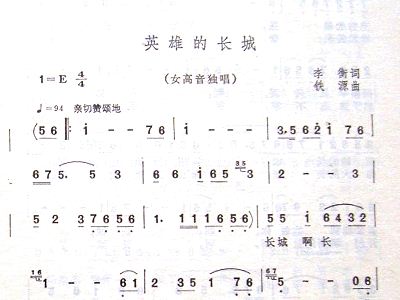 英雄的长城
1=E 4/4 (女高音独唱) 李 衡词
铁 源曲
♩=94 亲切赞颂地
(5 6 ‖: i - - 7 6 | i - - - | 3. 5 6 2 i 7 6 |
6 7 5. 5 3 | 6 - - - |
5 2 3 7 6 5 6 | 1. 1 1 1 6 5 6) | 5 5 i 6 4 3 2 |
长城 啊 长
1 - - 6 1 | 2 3 5 1 7 6 | 5 - - 0 6 |